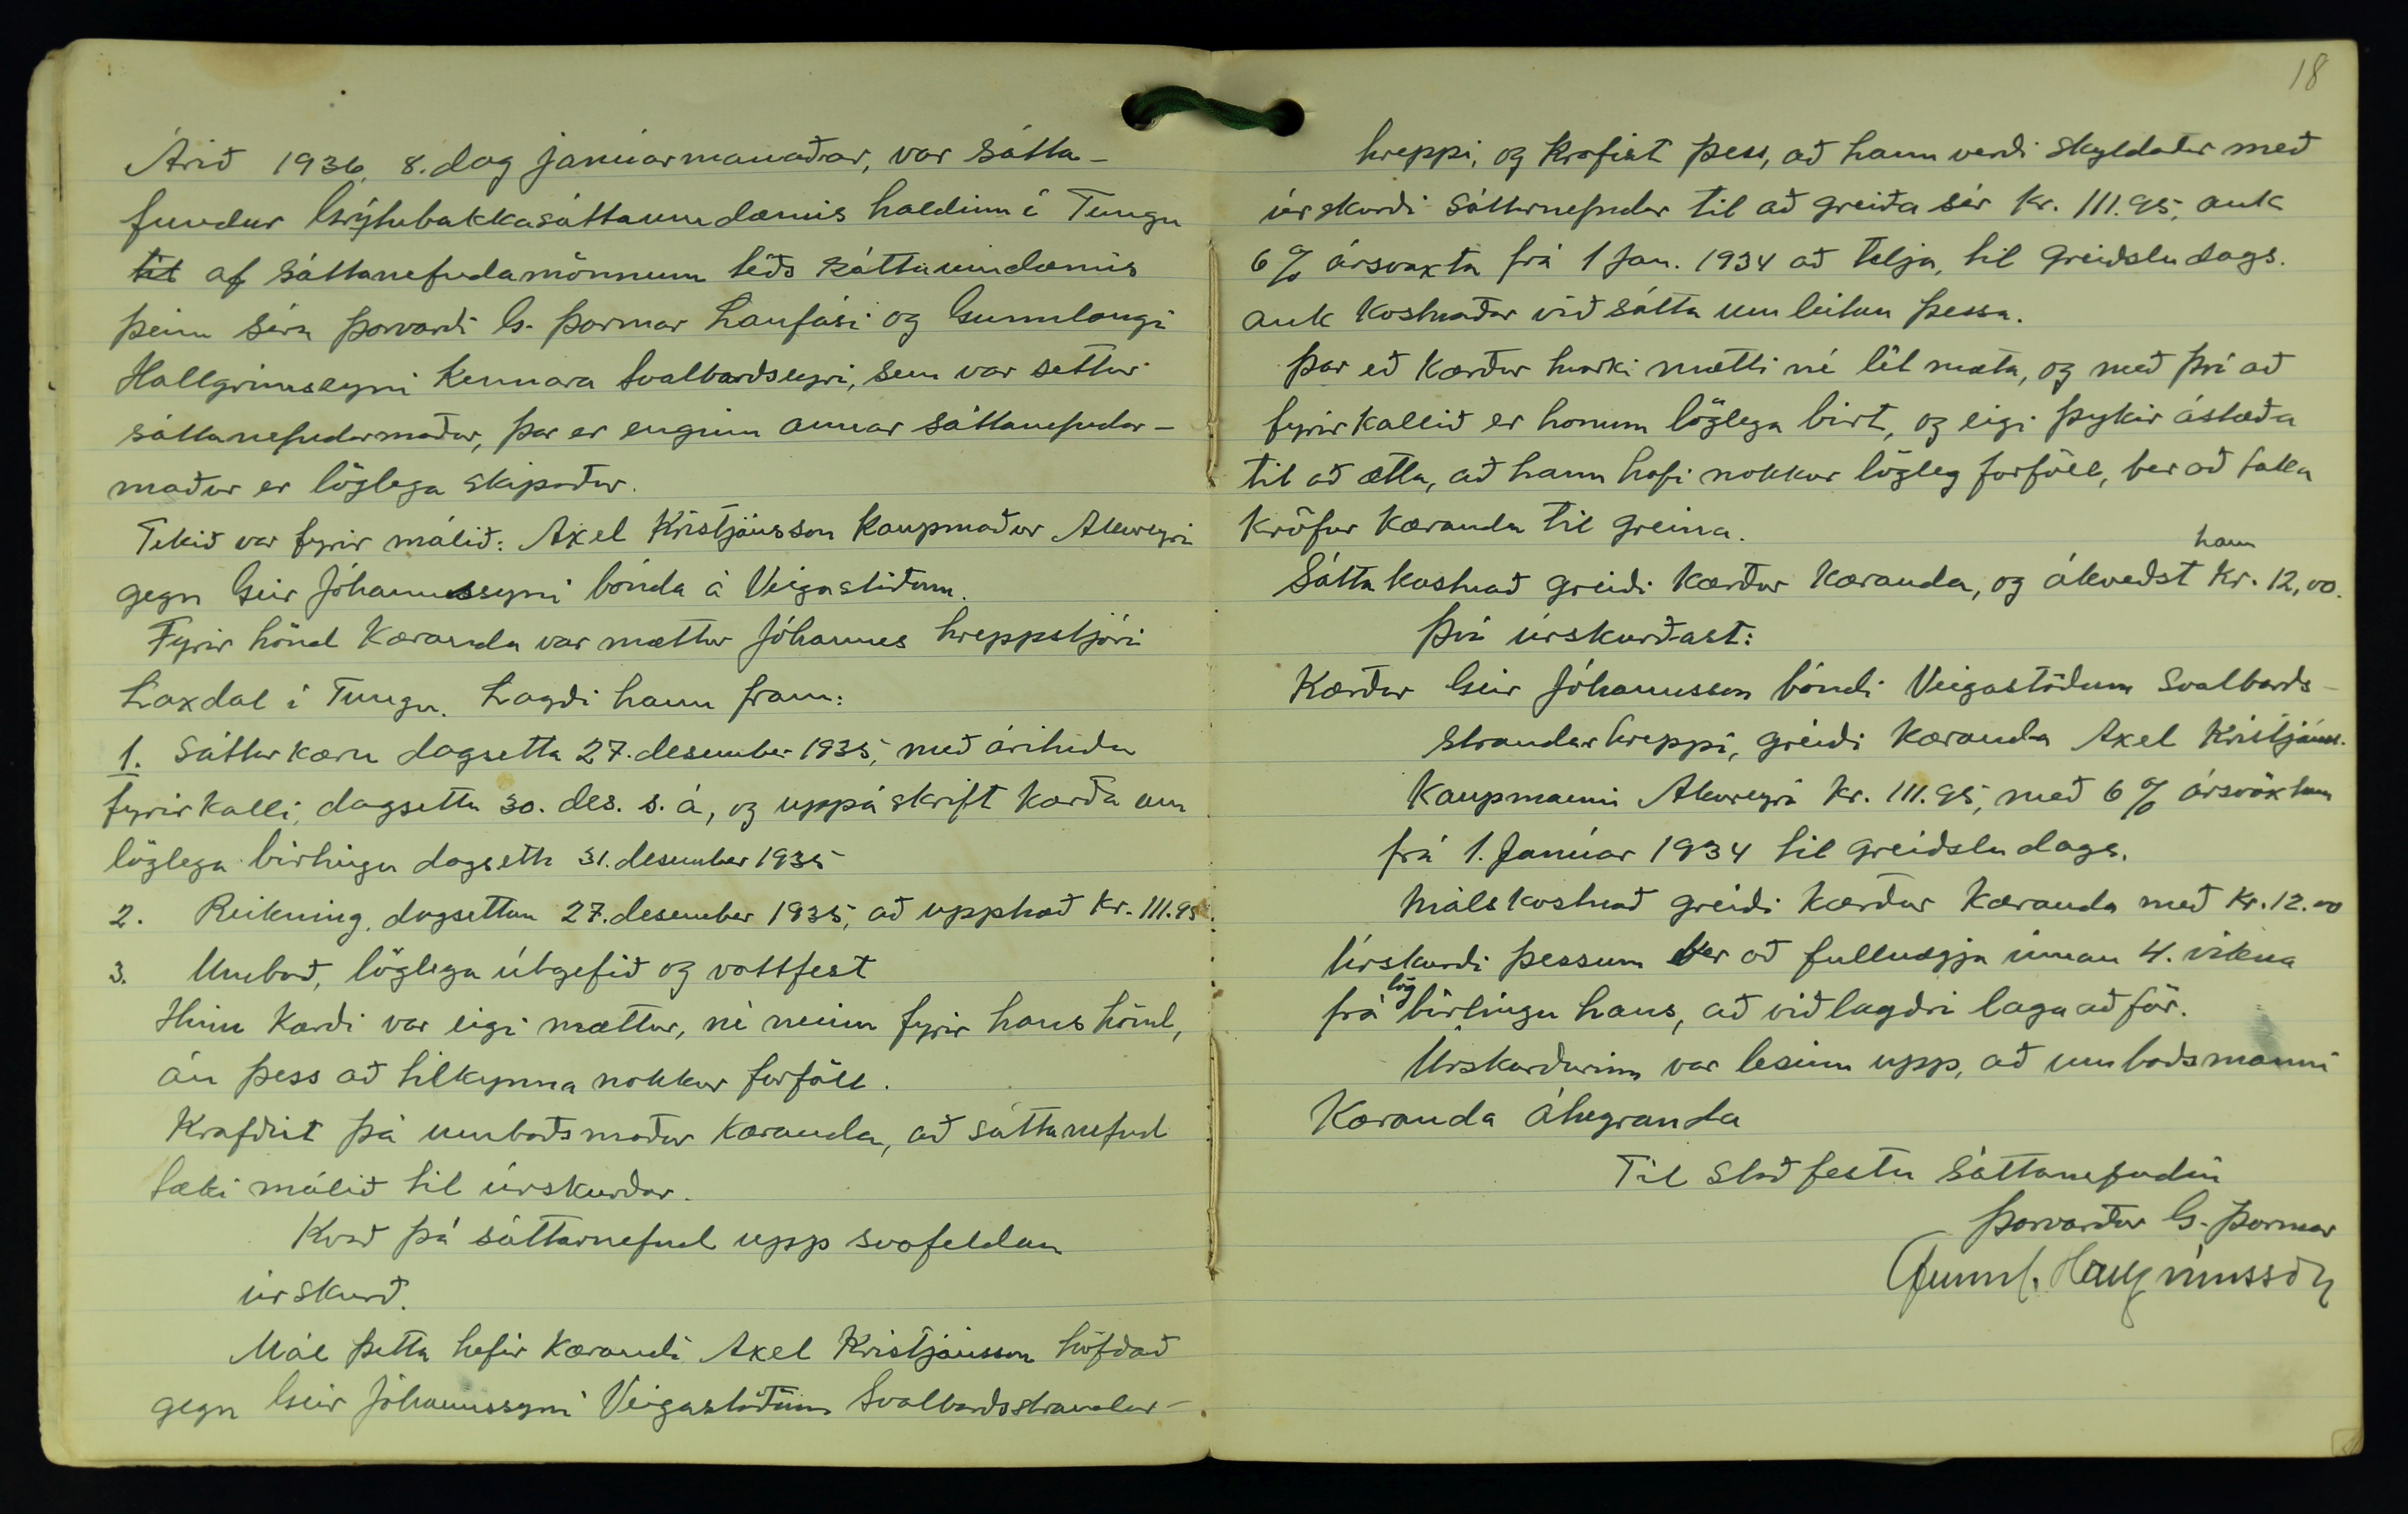 Árið 1936, 8. dag janúarmánaðar, var sátta-
fundur Grýtubakkasáttaumdæmis haldinn í Tungu
til af sáttanefndamönnum téðs sáttaumdæmis
þeim séra Þorvarði G. Þormar Laufási og Gunnlaugi
Hallgrímssyni kennara Svalbarðseyri, sem var settur
sáttanefndarmaður, þar er enginn annar sáttanefndar-
maður er löglega skipaður.
Tekið var fyrir málið: Axel Kristjánsson kaupmaður Akureyri
gegn Geir Jóhannssyni bónda á Veigastöðum.
Fyrir hönd kæranda var mættur Jóhannes hreppstjóri
Laxdal í Tungu. Lagði hann fram:
1. Sáttarkæru dagsetta 27. desember 1935, með árituðu
fyrirkalli, dagsettu 30. des. s. á, og uppáskrift kærða um
löglega birtingu dagsetta 31. desember 1935
2. Reikning, dagsettan 27. desember 1935, að upphæð kr. 111.95.
3. Umboð, löglega útgefið og vottfest
Hinn kærði var eigi mættur, né neinn fyrir hans hönd,
án þess að tilkynna nokkur forföll.
Krafðist þá umboðsmaður kæranda, að sáttanefnd
tæki málið til úrskurðar.
Kvað þá sáttarnefnd upp svofeldan
úrskurð.
Mál þetta hefir kærandi Axel Kristjánsson höfðað
gegn Geir Jóhannssyni Veigastöðum Svalbarðsstrandar-
18
hreppi, og krafist þess, að hann verði skyldaður með
úrskurði sáttarnefndar til að greiða sér kr. 111.95, auk
6% ársvaxta frá 1 Jan. 1934 að telja, til greiðsludags.
auk kostnaðar við sátta umleitun þessa.
Þar eð kærður hvorki mætti né lét mæta, og með því að
fyrirkallið er honum löglega birt, og eigi þykir ástæða
til að ætla, að hann hafi nokkur lögleg forföll, ber að taka
kröfur kæranda til greina.
hann
Sáttakostnað greiði kærður kæranda, og ákveðst kr. 12,00.
Því úrskurðast:
Kærður Geir Jóhannsson bóndi Veigastöðum Svalbarðs-
strandarhreppi, greiði kæranda Axel Kristjánss.
kaupmanni Akureyri kr. 111.95, með 6% ársvöxtum
frá 1. Janúar 1934 til greiðsludags.
Málskostnað greiði kærður kæranda með kr. 12.00
Úrskurði þessum ber að fullnægja innan 4. vikna
lög
frá birtingu hans, að viðlagðri lagaaðför.
Úrskurðurinn var lesinn upp, að umboðsmanni
kæranda áheyranda
Til staðfestu Sáttanefndin
Þorvarður G. Þormar
Gunnl. Hallgrímsson